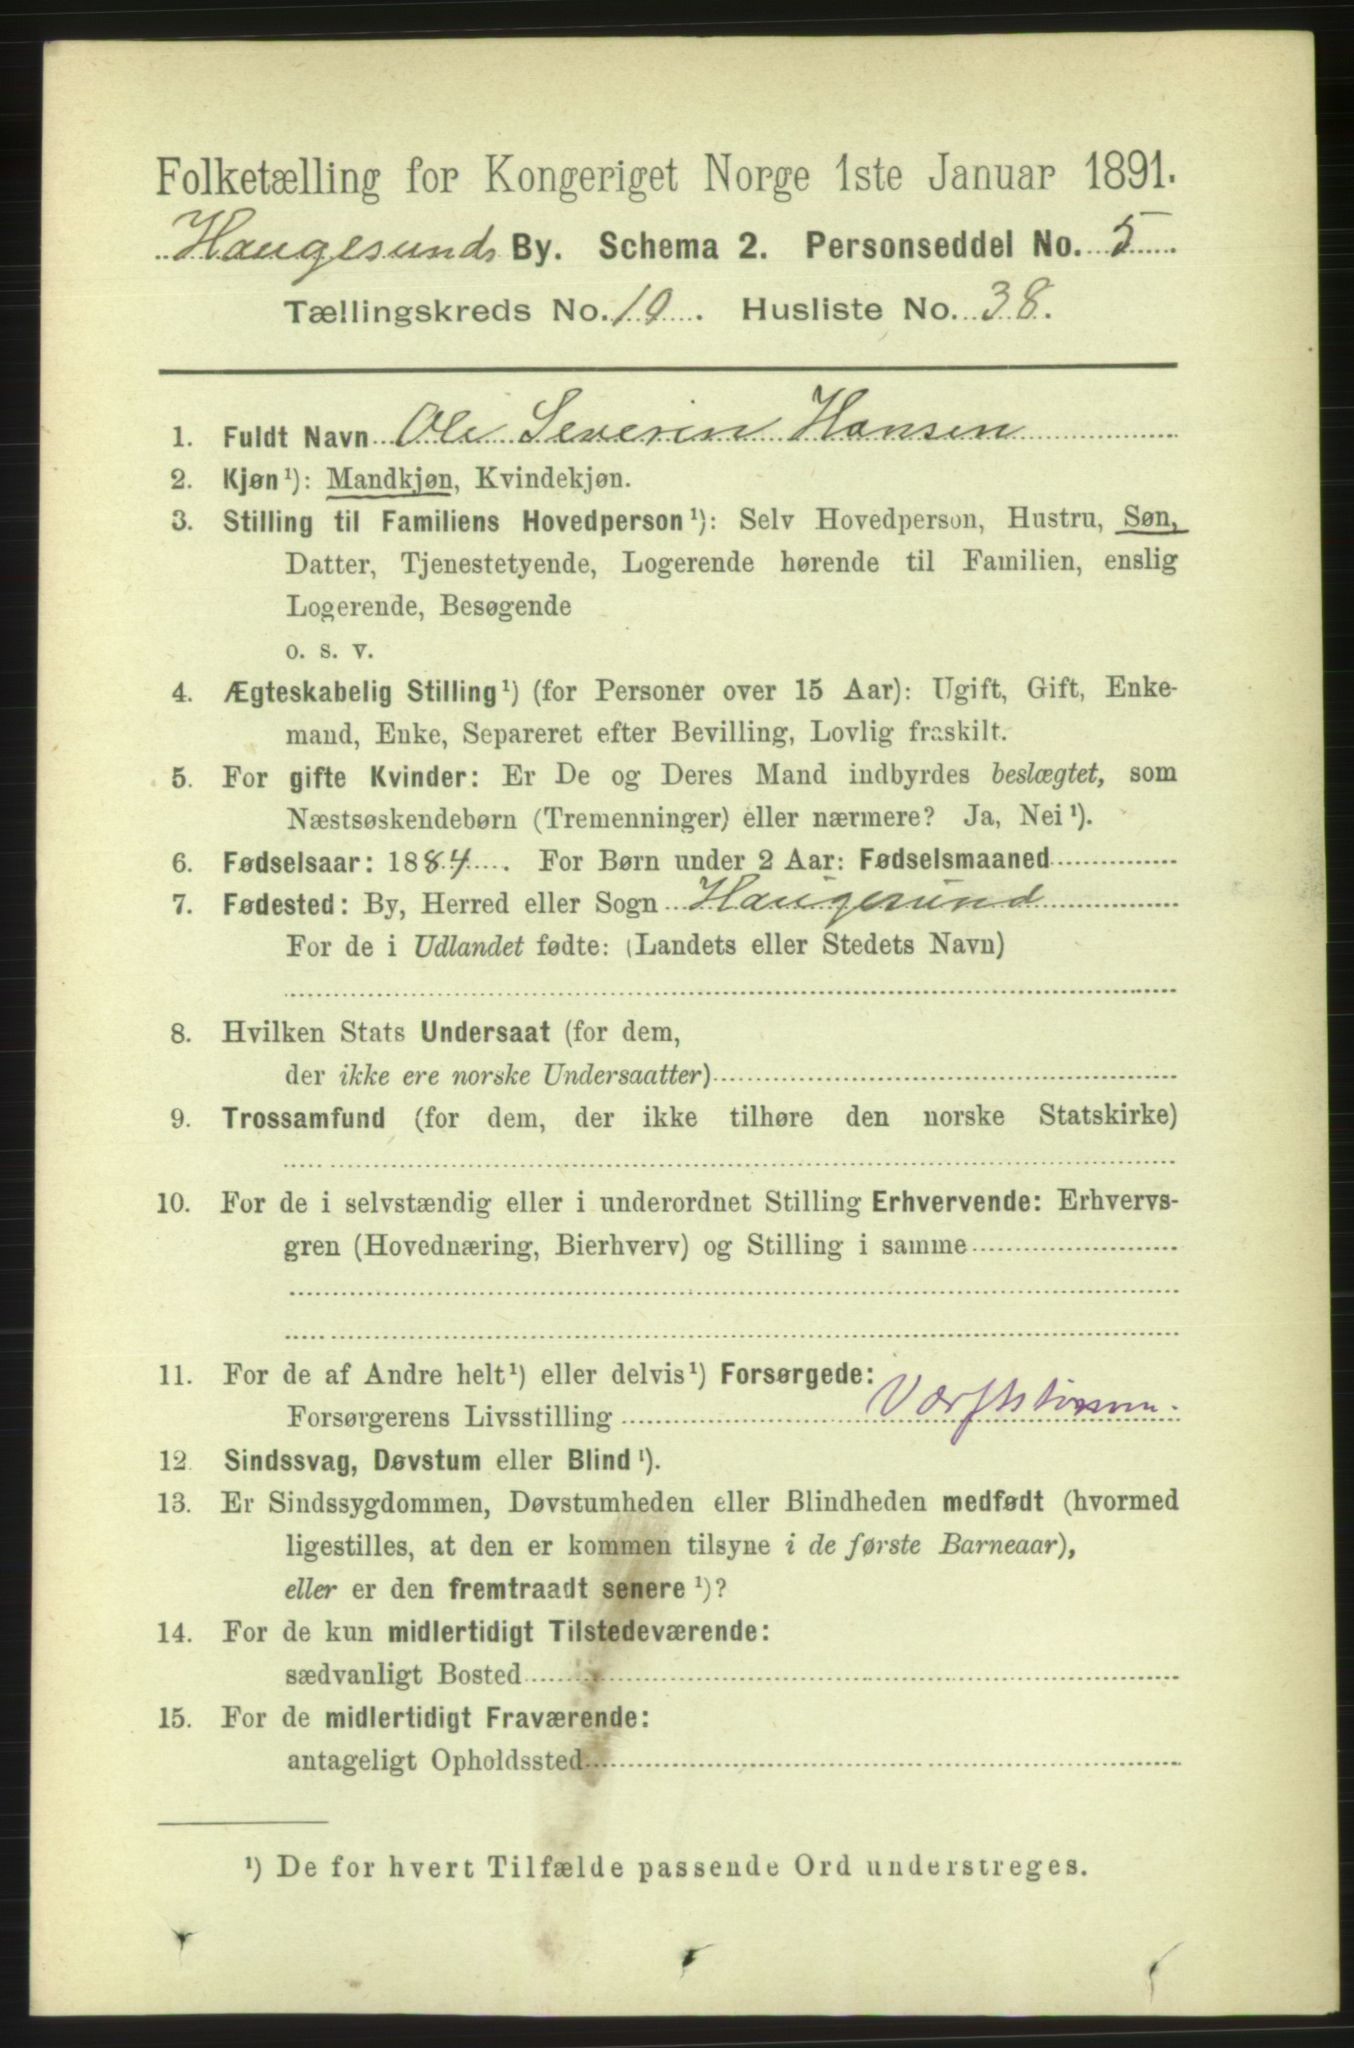 Folketælling for Kongeriget Norge 1ste Januar 1891.
Haugesunds By. Schema 2. Personseddel No. 5
Tællingskreds No. 10. Husliste No. 38.
1. Fuldt Navn Ole Severin Hansen
2. Kjøn¹): Mandkjøn, Kvindekjøn.
3. Stilling til Familiens Hovedperson¹): Selv Hovedperson, Hustru, Søn,
Datter, Tjenestetyende, Logerende hørende til Familien, enslig
Logerende, Besøgende
o. s. v.
4. Ægteskabelig Stilling¹) (for Personer over 15 Aar): Ugift, Gift, Enke-
mand, Enke, Separeret efter Bevilling, Lovlig fraskilt.
5. For gifte Kvinder: Er De og Deres Mand indbyrdes beslægtet, som
Næstsøskendebørn (Tremenninger) eller nærmere? Ja, Nei¹).
6. Fødselsaar: 1884. For Børn under 2 Aar: Fødselsmaaned
7. Fødested: By, Herred eller Sogn Haugesund
For de i Udlandet fødte: (Landets eller Stedets Navn)
8. Hvilken Stats Undersaat (for dem,
der ikke ere norske Undersaatter)
9. Trossamfund (for dem, der ikke tilhøre den norske Statskirke)
10. For de i selvstændig eller i underordnet Stilling Erhvervende: Erhvervs-
gren (Hovednæring, Bierhverv) og Stilling i samme
11. For de af Andre helt¹) eller delvis¹) Forsørgede:
Forsørgerens Livsstilling
12. Sindssvag, Døvstum eller Blind¹).
13. Er Sindssygdommen, Døvstumheden eller Blindheden medfødt (hvormed
ligestilles, at den er kommen tilsyne i de første Barneaar),
eller er den fremtraadt senere¹)?
14. For de kun midlertidigt Tilstedeværende:
sædvanligt Bosted
15. For de midlertidigt Fraværende:
antageligt Opholdssted
¹) De for hvert Tilfælde passende Ord understreges.